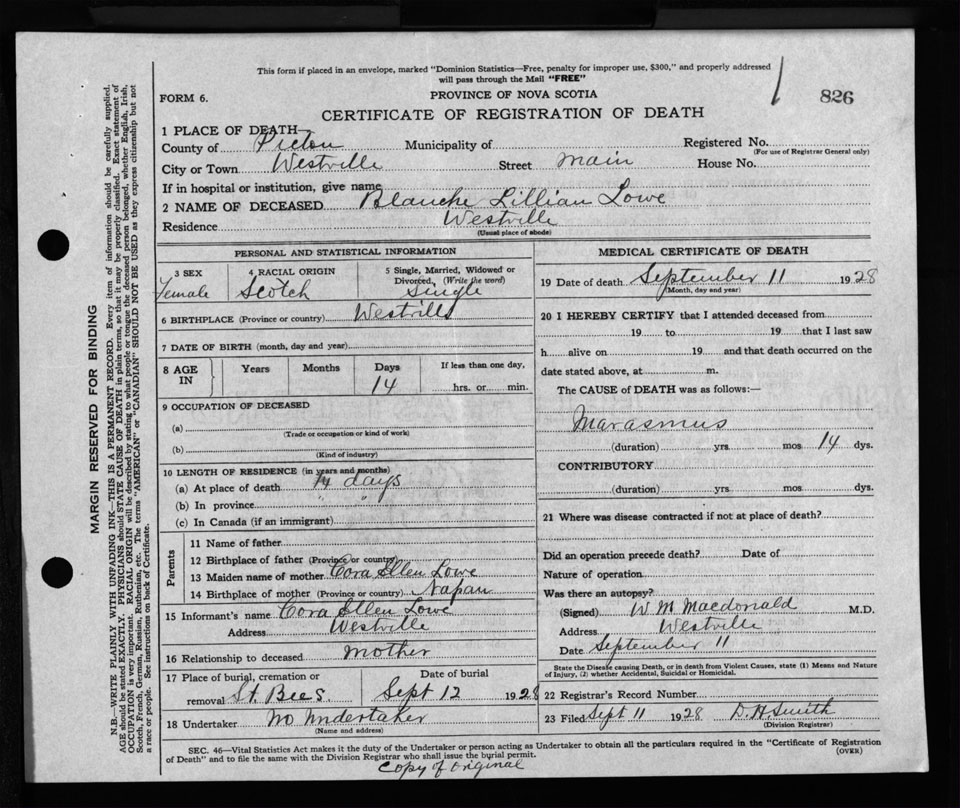 This form if placed in an envelope, marked "Dominion Statistics—Free, penalty for improper use, $300," and properly addressed
will pass through the Mail "FREE"
826
FORM 6.
PROVINCE OF NOVA SCOTIA
CERTIFICATE OF REGISTRATION OF DEATH
1 PLACE OF DEATH—
County of Pictou Municipality of Registered No.
(For use of Registrar General only)
City or Town Westville Street Main House No.
If in hospital or institution, give name
2 NAME OF DECEASED Blanche Lillian Lowe
Residence Westville
(Usual place of abode)
PERSONAL AND STATISTICAL INFORMATION
3 SEX 4 RACIAL ORIGIN 5 Single, Married, Widowed or
Divorced, (Write the word)
Female Scotch Single
6 BIRTHPLACE (Province or country) Westville
7 DATE OF BIRTH (month, day and year)
8 AGE IN Years Months Days If less than one day,
14 hrs. or min.
9 OCCUPATION OF DECEASED
(a)
(Trade or occupation or kind of work)
(b)
(Kind of industry)
10 LENGTH OF RESIDENCE (in years and months)
(a) At place of death 14 days
(b) In province " "
(c) In Canada (if an immigrant)
Parents
11 Name of father
12 Birthplace of father (Province or country)
13 Maiden name of mother Cora Ellen Lowe
14 Birthplace of mother (Province or country) Napan
15 Informant's name Cora Ellen Lowe
Address Westville
16 Relationship to deceased mother
17 Place of burial, cremation or Date of burial
removal St. Bees. Sept 12 1928
18 Undertaker No Undertaker
(Name and address)
MEDICAL CERTIFICATE OF DEATH
19 Date of death September 11 1928
(Month, day and year)
20 I HEREBY CERTIFY that I attended deceased from
19 to 19 that I last saw
h alive on 19 and that death occurred on the
date stated above, at m.
The CAUSE of DEATH was as follows:—
Marasmus
(duration) yrs. mos 14 dys.
CONTRIBUTORY
(duration) yrs. mos dys.
21 Where was disease contracted if not at place of death?
Did an operation precede death? Date of
Nature of operation
Was there an autopsy?
(Signed) W M Macdonald M.D.
Address Westville
Date September 11
State the Disease causing Death, or in death from Violent Causes, state (1) Means and Nature
of Injury, (2) whether Accidental, Suicidal or Homicidal.
22 Registrar's Record Number
23 Filed Sept 11 1928 D.H. Smith
(Division Registrar)
SEC. 46—Vital Statistics Act makes it the duty of the Undertaker or person acting as Undertaker to obtain all the particulars required in the "Certificate of Registration
of Death" and to file the same with the Division Registrar who shall issue the burial permit.
(OVER)
Copy of Original
MARGIN RESERVED FOR BINDING
N.B.—WRITE PLAINLY WITH UNFADING INK—THIS IS A PERMANENT RECORD. Every item of information should be carefully supplied.
AGE should be stated EXACTLY. PHYSICIANS should STATE CAUSE OF DEATH in plain terms, so that it may be properly classified. Exact statement of
OCCUPATION is very important. RACIAL ORIGIN will be described by stating to what people or tongue the deceased person belonged, whether English, Irish,
Scotch, French, German, Russian, Ruthenian, etc. The terms "AMERICAN" or "CANADIAN" SHOULD NOT BE USED as they express citizenship but not
a race or people. See instructions on back of Certificate.